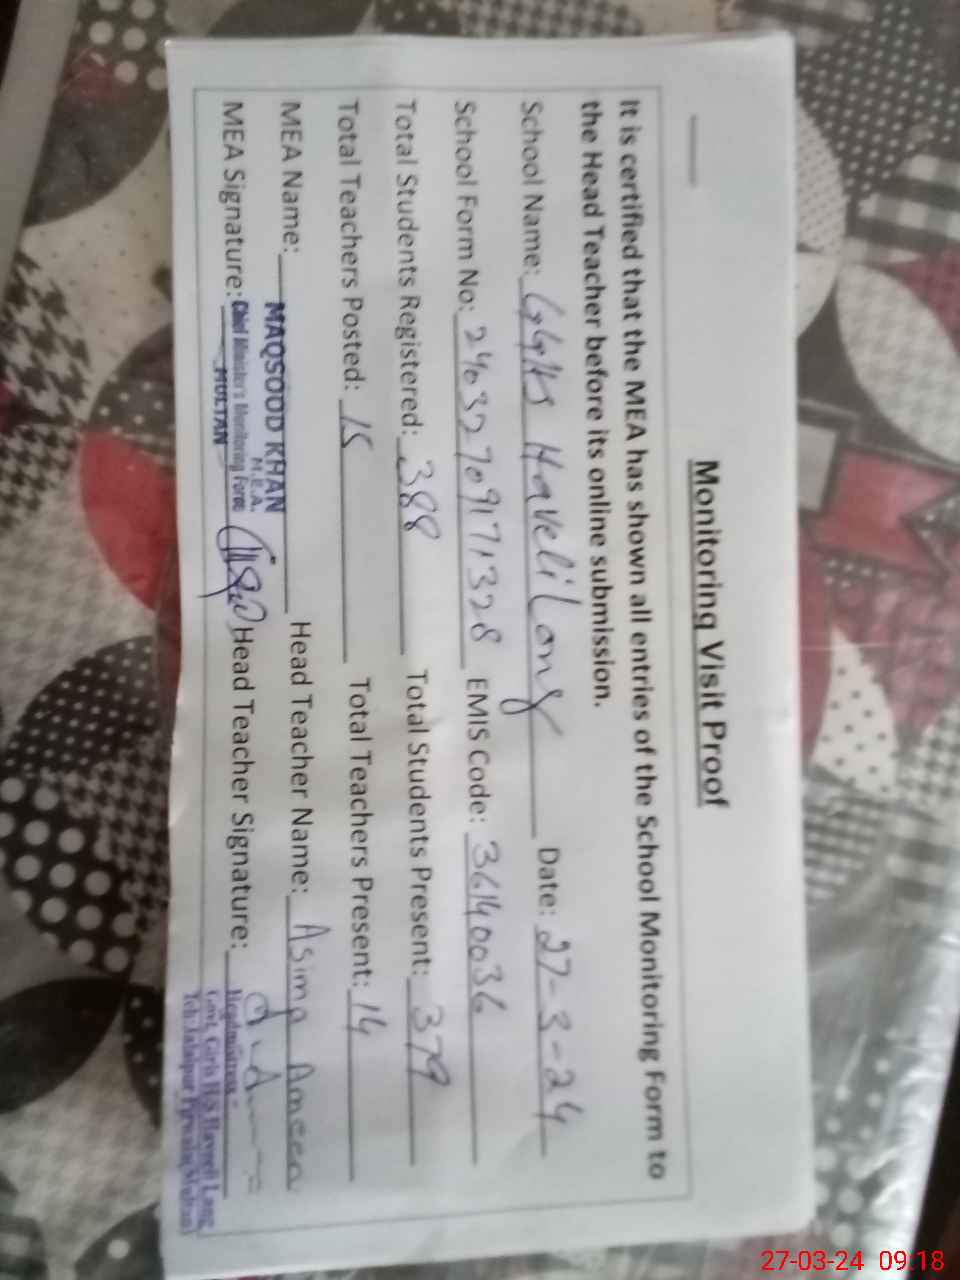 Monitoring Visit Proof
It is certified that the MEA has shown all entries of the School Monitoring Form to
the Head Teacher before its online submission.
School Name: GGHS Haveli Lang Date: 27-3-24
School Form No: 24032709171328 EMIS Code: 36140036
Total Students Registered: 388 Total Students Present: 379
Total Teachers Posted: 15 Total Teachers Present: 14
MEA Name: MAQSOOD KHAN Head Teacher Name: Asima Ameen
M.E.A.
MEA Signature: Chief Minister's Monitoring Force Head Teacher Signature:
MULTAN
Headmistress
Govt. Girls H/S Haveli Lang
Teh: Jalalpur Pirwala Multan
27-03-24 09:18